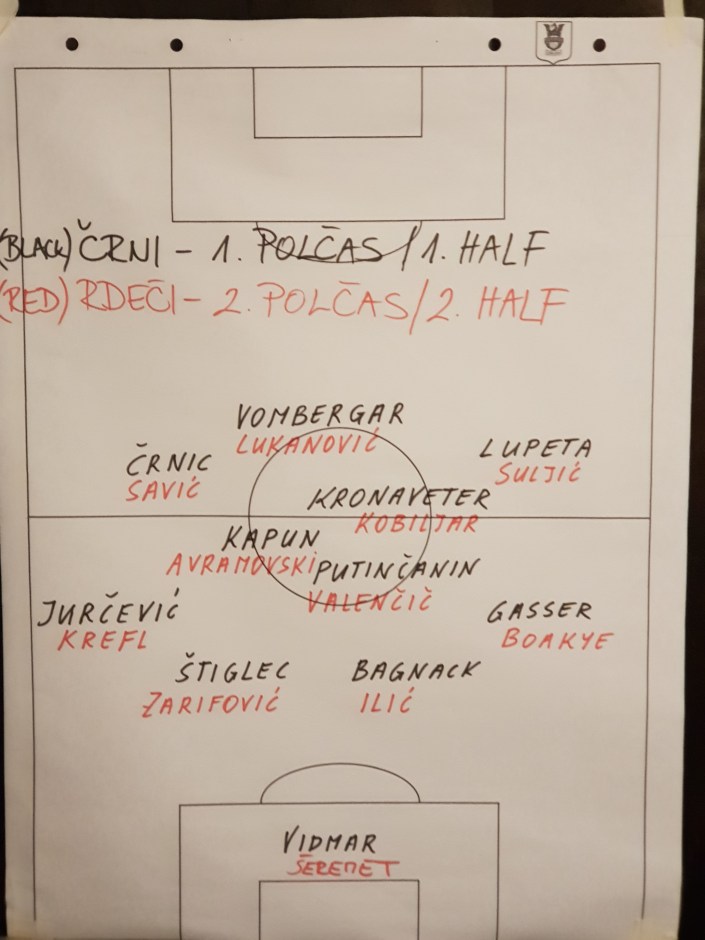 (BLACK) ČRNI - 1. POLČAS / 1. HALF
(RED) RDEČI - 2. POLČAS / 2. HALF
VOMBERGAR
LUKANOVIĆ
ČRNIC
SAVIĆ
LUPETA
SULJIĆ
KRONAVETER
KOBILJAR
KAPUN
AVRAMOVSKI
PUTINČANIN
VALENČIČ
JURČEVIĆ
KREFL
GASSER
BOAKYE
ŠTIGLEC
ZARIFOVIĆ
BAGNACK
ILIĆ
VIDMAR
ŠEREMET